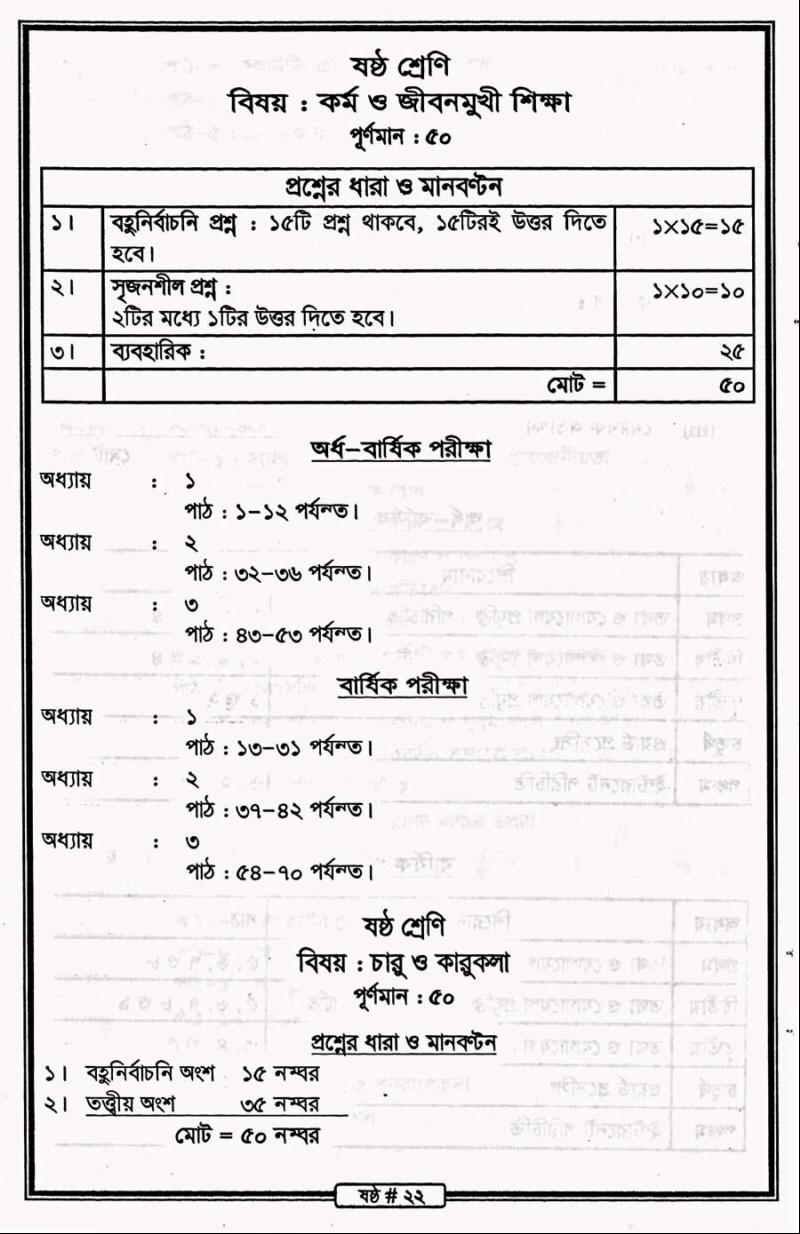 ষষ্ঠ শ্রেণি
বিষয় : কর্ম ও জীবনমুখী শিক্ষা
পূর্ণমান : ৫০
প্রশ্নের ধারা ও মানবণ্টন
১। বহুনির্বাচনি প্রশ্ন : ১৫টি প্রশ্ন থাকবে, ১৫টিরই উত্তর দিতে ১×১৫=১৫
হবে।
২। সৃজনশীল প্রশ্ন : ১×১০=১০
২টির মধ্যে ১টির উত্তর দিতে হবে।
৩। ব্যবহারিক : ২৫
মোট = ৫০
অর্ধ-বার্ষিক পরীক্ষা
অধ্যায় : ১
পাঠ : ১-১২ পর্যন্ত।
অধ্যায় : ২
পাঠ : ৩২-৩৬ পর্যন্ত।
অধ্যায় : ৩
পাঠ : ৪৩-৫৩ পর্যন্ত।
বার্ষিক পরীক্ষা
অধ্যায় : ১
পাঠ : ১৩-৩১ পর্যন্ত।
অধ্যায় : ২
পাঠ : ৩৭-৪২ পর্যন্ত।
অধ্যায় : ৩
পাঠ : ৫৪-৭০ পর্যন্ত।
ষষ্ঠ শ্রেণি
বিষয় : চারু ও কারুকলা
পূর্ণমান : ৫০
প্রশ্নের ধারা ও মানবণ্টন
১। বহুনির্বাচনি অংশ ১৫ নম্বর
২। তত্ত্বীয় অংশ ৩৫ নম্বর
মোট = ৫০ নম্বর
ষষ্ঠ # ২২